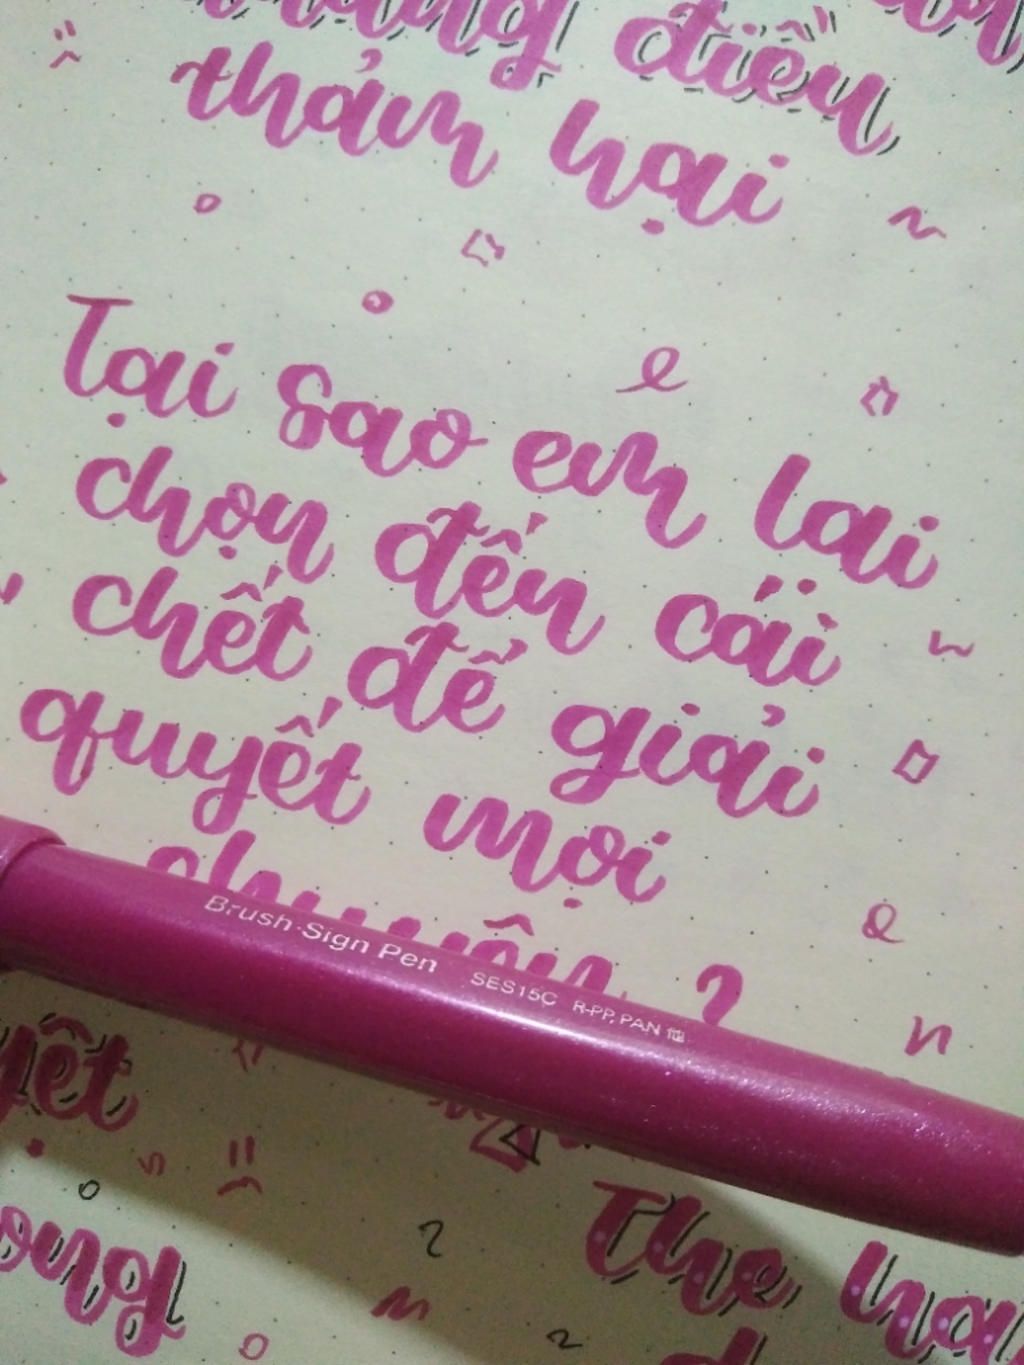 điều
thảm hại
Tại sao em lại
chọn đến cái
chết, để giải
quyết mọi
chuyện ?
Brush Sign Pen SES15C R-PP, PAN 他
The